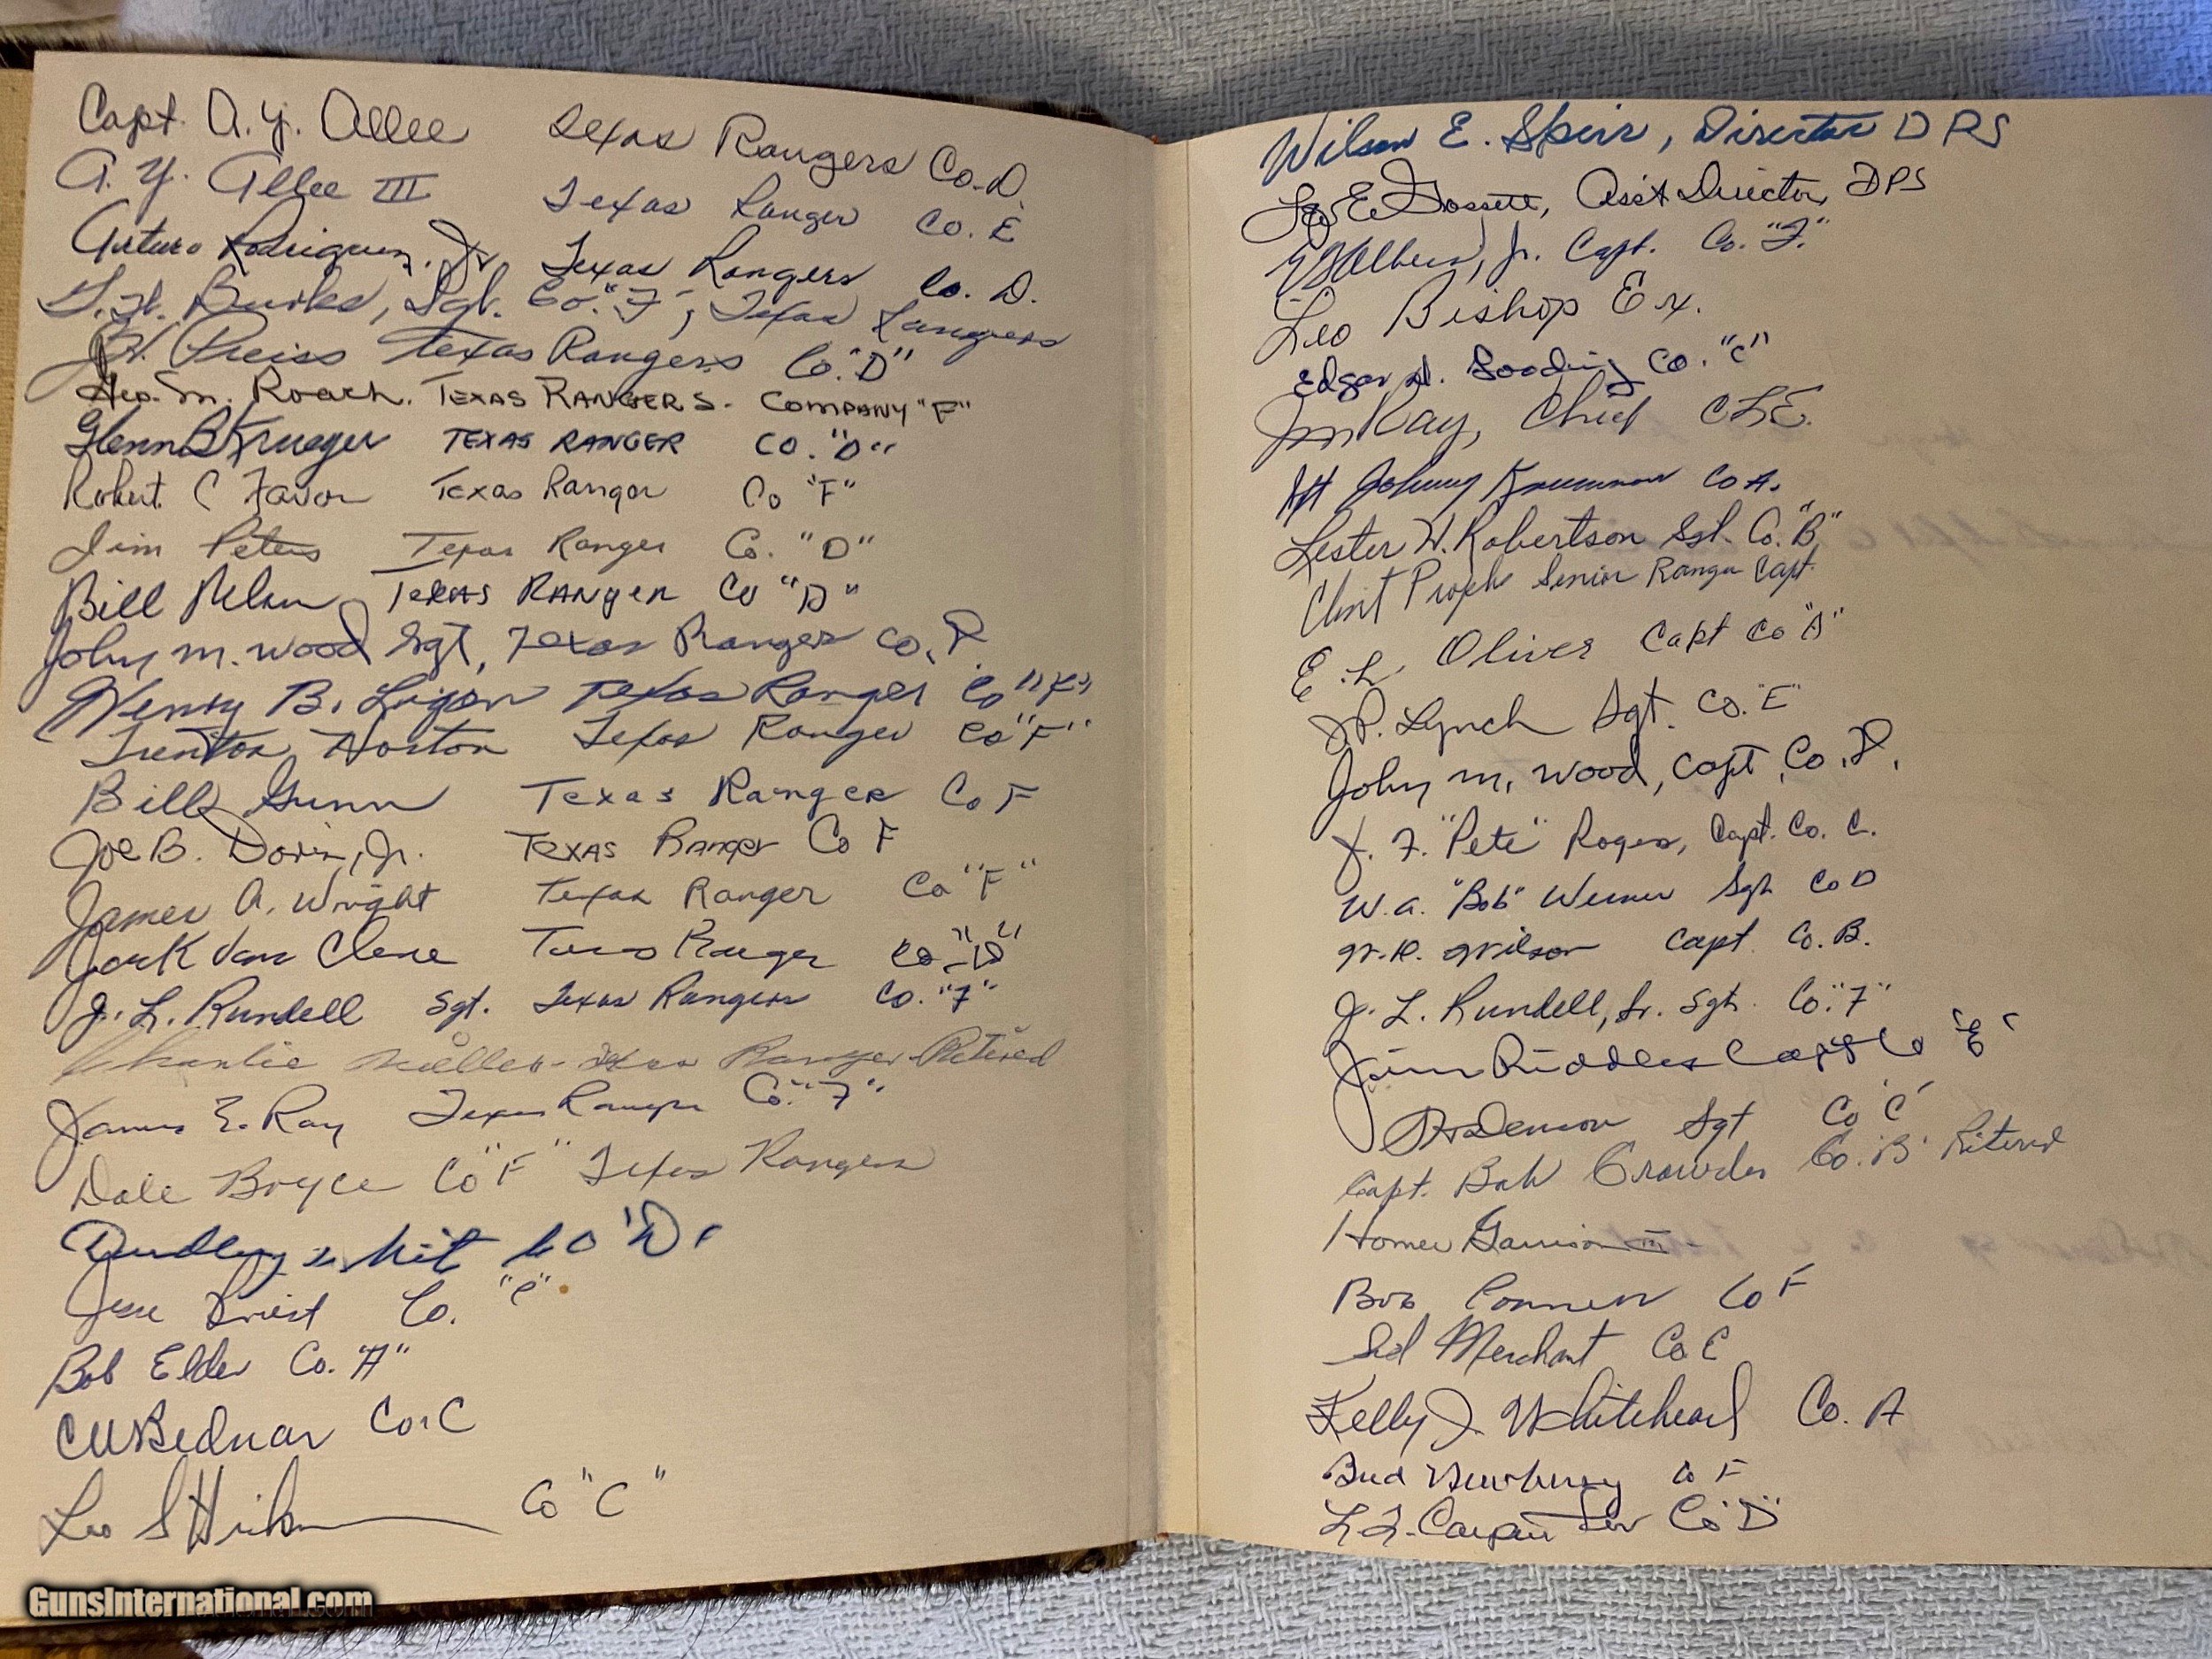 Capt. A. Y. Allee Texas Rangers Co. D.
A. Y. Allee III Texas Ranger Co. E
Arturo Rodriguez, Jr Texas Rangers Co. D.
Burks, Sgt. Co. "F", Texas Rangers
Preiss Texas Rangers Co. "D"
Geo. M. Roach. TEXAS RANGERS. COMPANY "F"
Glenn B Krueger TEXAS RANGER CO. "D"
Robert C Favor Texas Ranger Co "F"
Jim Peters Texas Ranger Co. "D"
Bill Nelson TEXAS RANGER Co "D"
John M. Wood Sgt, Texas Ranger Co. D
Henry B. Ligon Texas Ranger Co "F"
Trenton Horton Texas Ranger Co "F"
Bill Gunn Texas Ranger Co F
Joe B. Davis, Jr. TEXAS Ranger Co F
James A. Wright Texas Ranger Co "F"
Jack Van Cleve Texas Ranger Co. "D"
J. L. Rundell Sgt. Texas Rangers Co. "F"
Charlie Miller - Texas Ranger - Retired
James E. Ray Texas Ranger Co. "F"
Dale Bryce Co "F" Texas Rangers
Dudley White Co 'D'
Jesse Priest Co. "C"
Bob Elder Co. "A"
CW Bednar Co. C
Leo S Hickman Co "C"
Wilson E. Speir, Director DPS
Leo E. Gossett, Ass't Director, DPS
Jr. Capt. Co. "F."
Leo Bishop Ex.
Edgar D. Gooding Co. "C"
Jim Ray, Chief CLE.
Sgt Johnny Krumnow Co A.
Lester W. Robertson Sgt. Co. "B"
Clint Peoples Senior Ranger Capt.
E. L. Oliver Capt Co "A"
J.P. Lynch Sgt. Co. "E"
John M. Wood, Capt, Co. D.
J. F. "Pete" Rogers, Capt. Co. C.
W. A. "Bob" Werner Sgt Co D
W. R. Wilson Capt. Co. B.
J. L. Rundell, Sr. Sgt. Co. "F"
Jim Riddles Capt Co "E"
Sgt Co 'C'
Capt. Bob Crowder Co. "B" Retired
Homer Garrison III
Bob Connell Co F
Sid Merchant Co C
Kelly J. Whitehead Co. A
Bud Newberry Co F
L. L. Carpenter Co "D"
GunsInternational.com